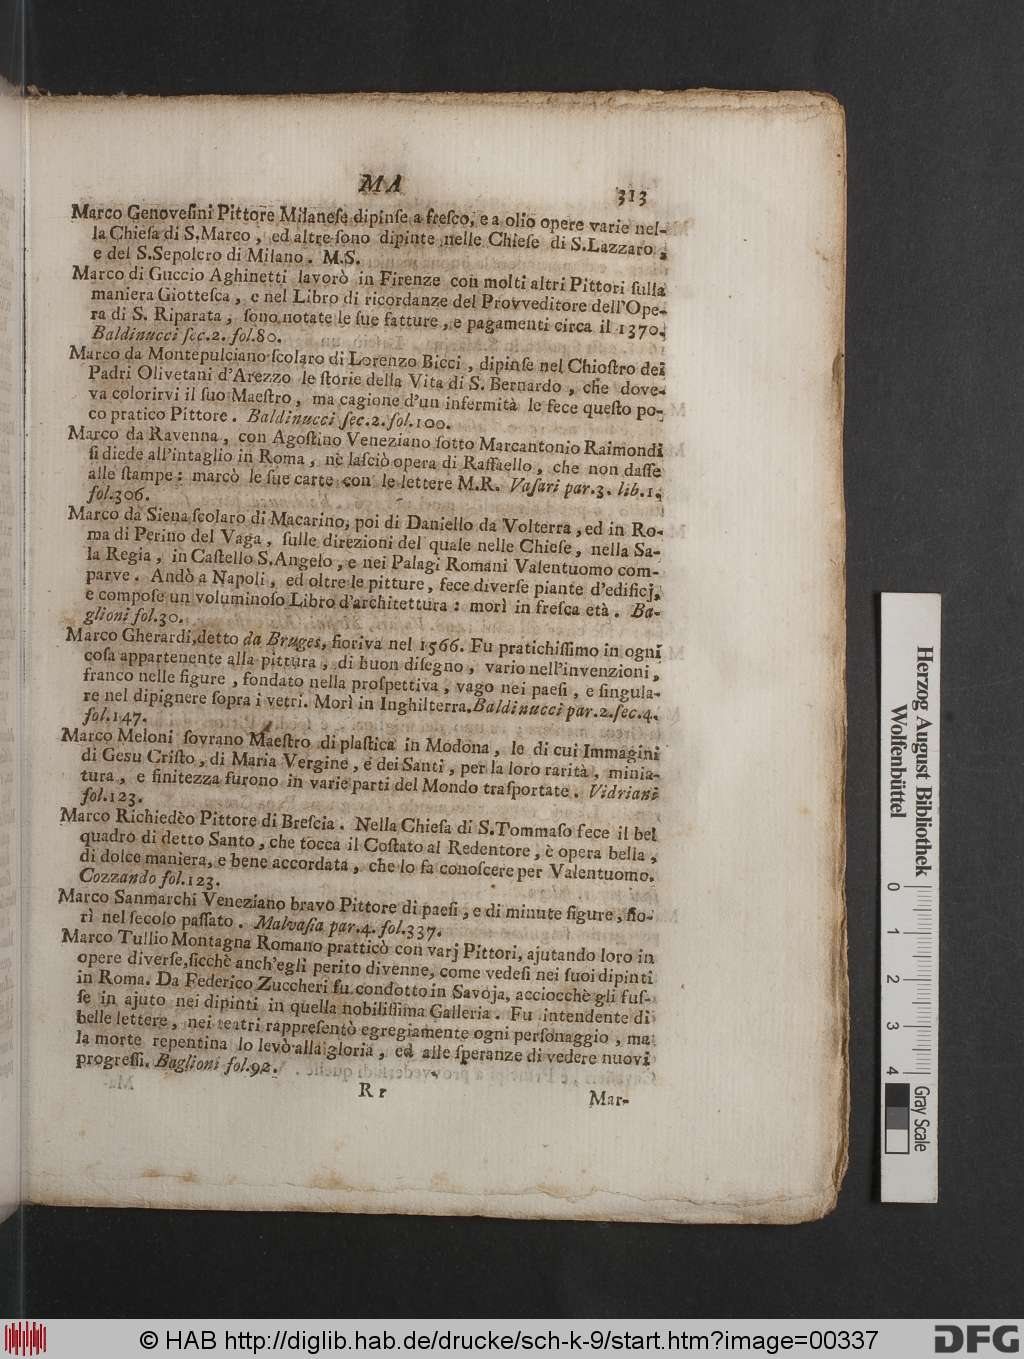 MA
313
Marco Genoveſini Pittore Milaneſe dipinſe a freſco, e a olio opere varie nel-
la Chieſa di S.Marco, ed altre ſono dipinte nelle Chieſe di S.Lazzaro,
e del S.Sepolcro di Milano. M.S.
Marco di Guccio Aghinetti lavorò in Firenze con molti altri Pittori ſulla
maniera Giotteſca, e nel Libro di ricordanze del Provveditore dell'Ope-
ra di S. Riparata, ſono notate le ſue fatture, e pagamenti circa il 1370.
Baldinucci ſec.2. fol.80.
Marco da Montepulciano ſcolaro di Lorenzo Bicci, dipinſe nel Chioſtro dei
Padri Olivetani d'Arezzo le ſtorie della Vita di S. Bernardo, che dove-
va colorirvi il ſuo Maeſtro, ma cagione d'un infermità le fece queſto po-
co pratico Pittore. Baldinucci ſec.2. fol.100.
Marco da Ravenna, con Agoſtino Veneziano ſotto Marcantonio Raimondi
ſi diede all'intaglio in Roma, nè laſciò opera di Raffaello, che non daſſe
alle ſtampe: marcò le ſue carte con le lettere M.R. Vaſari par.3. lib.1.
fol.306.
Marco da Siena ſcolaro di Macarino, poi di Daniello da Volterra, ed in Ro-
ma di Perino del Vaga, ſulle direzioni del quale nelle Chieſe, nella Sa-
la Regia, in Caſtello S.Angelo, e nei Palagi Romani Valentuomo com-
parve. Andò a Napoli, ed oltre le pitture, fece diverſe piante d'edificj,
e compoſe un voluminoſo Libro d'architettura: morì in freſca età. Ba-
glioni fol.30.
Marco Gherardi, detto da Bruges, fioriva nel 1566. Fu pratichiſſimo in ogni
coſa appartenente alla pittura, di buon diſegno, vario nell'invenzioni,
franco nelle figure, fondato nella proſpettiva, vago nei paeſi, e ſingula-
re nel dipignere ſopra i vetri. Morì in Inghilterra. Baldinucci par.2. ſec.4.
fol.147.
Marco Meloni ſovrano Maeſtro di plaſtica in Modona, le di cui Immagini
di Gesu Criſto, di Maria Vergine, e dei Santi, per la loro rarità, minia-
tura, e finitezza furono in varie parti del Mondo traſportate. Vidriani
fol.123.
Marco Richiedèo Pittore di Breſcia. Nella Chieſa di S.Tommaſo fece il bel
quadro di detto Santo, che tocca il Coſtato al Redentore, è opera bella,
di dolce maniera, e bene accordata, che lo fa conoſcere per Valentuomo.
Cozzando fol.123.
Marco Sanmarchi Veneziano bravo Pittore di paeſi, e di minute figure, fio-
rì nel ſecolo paſſato. Malvaſia par.4. fol.337.
Marco Tullio Montagna Romano pratticò con varj Pittori, ajutando loro in
opere diverſe, ſicchè anch'egli perito divenne, come vedeſi nei ſuoi dipinti
in Roma. Da Federico Zuccheri fu condotto in Savoja, acciocchè gli fuſ-
ſe in ajuto nei dipinti in quella nobiliſſima Galleria. Fu intendente di
belle lettere, nei teatri rappreſentò egregiamente ogni perſonaggio, ma
la morte repentina lo levò alla gloria, ed alle ſperanze di vedere nuovi
progreſſi. Baglioni fol.92.
R r
Mar-
Herzog August Bibliothek
Wolfenbüttel
0 1 2 3 4
Gray Scale
© HAB http://diglib.hab.de/drucke/sch-k-9/start.htm?image=00337
DFG